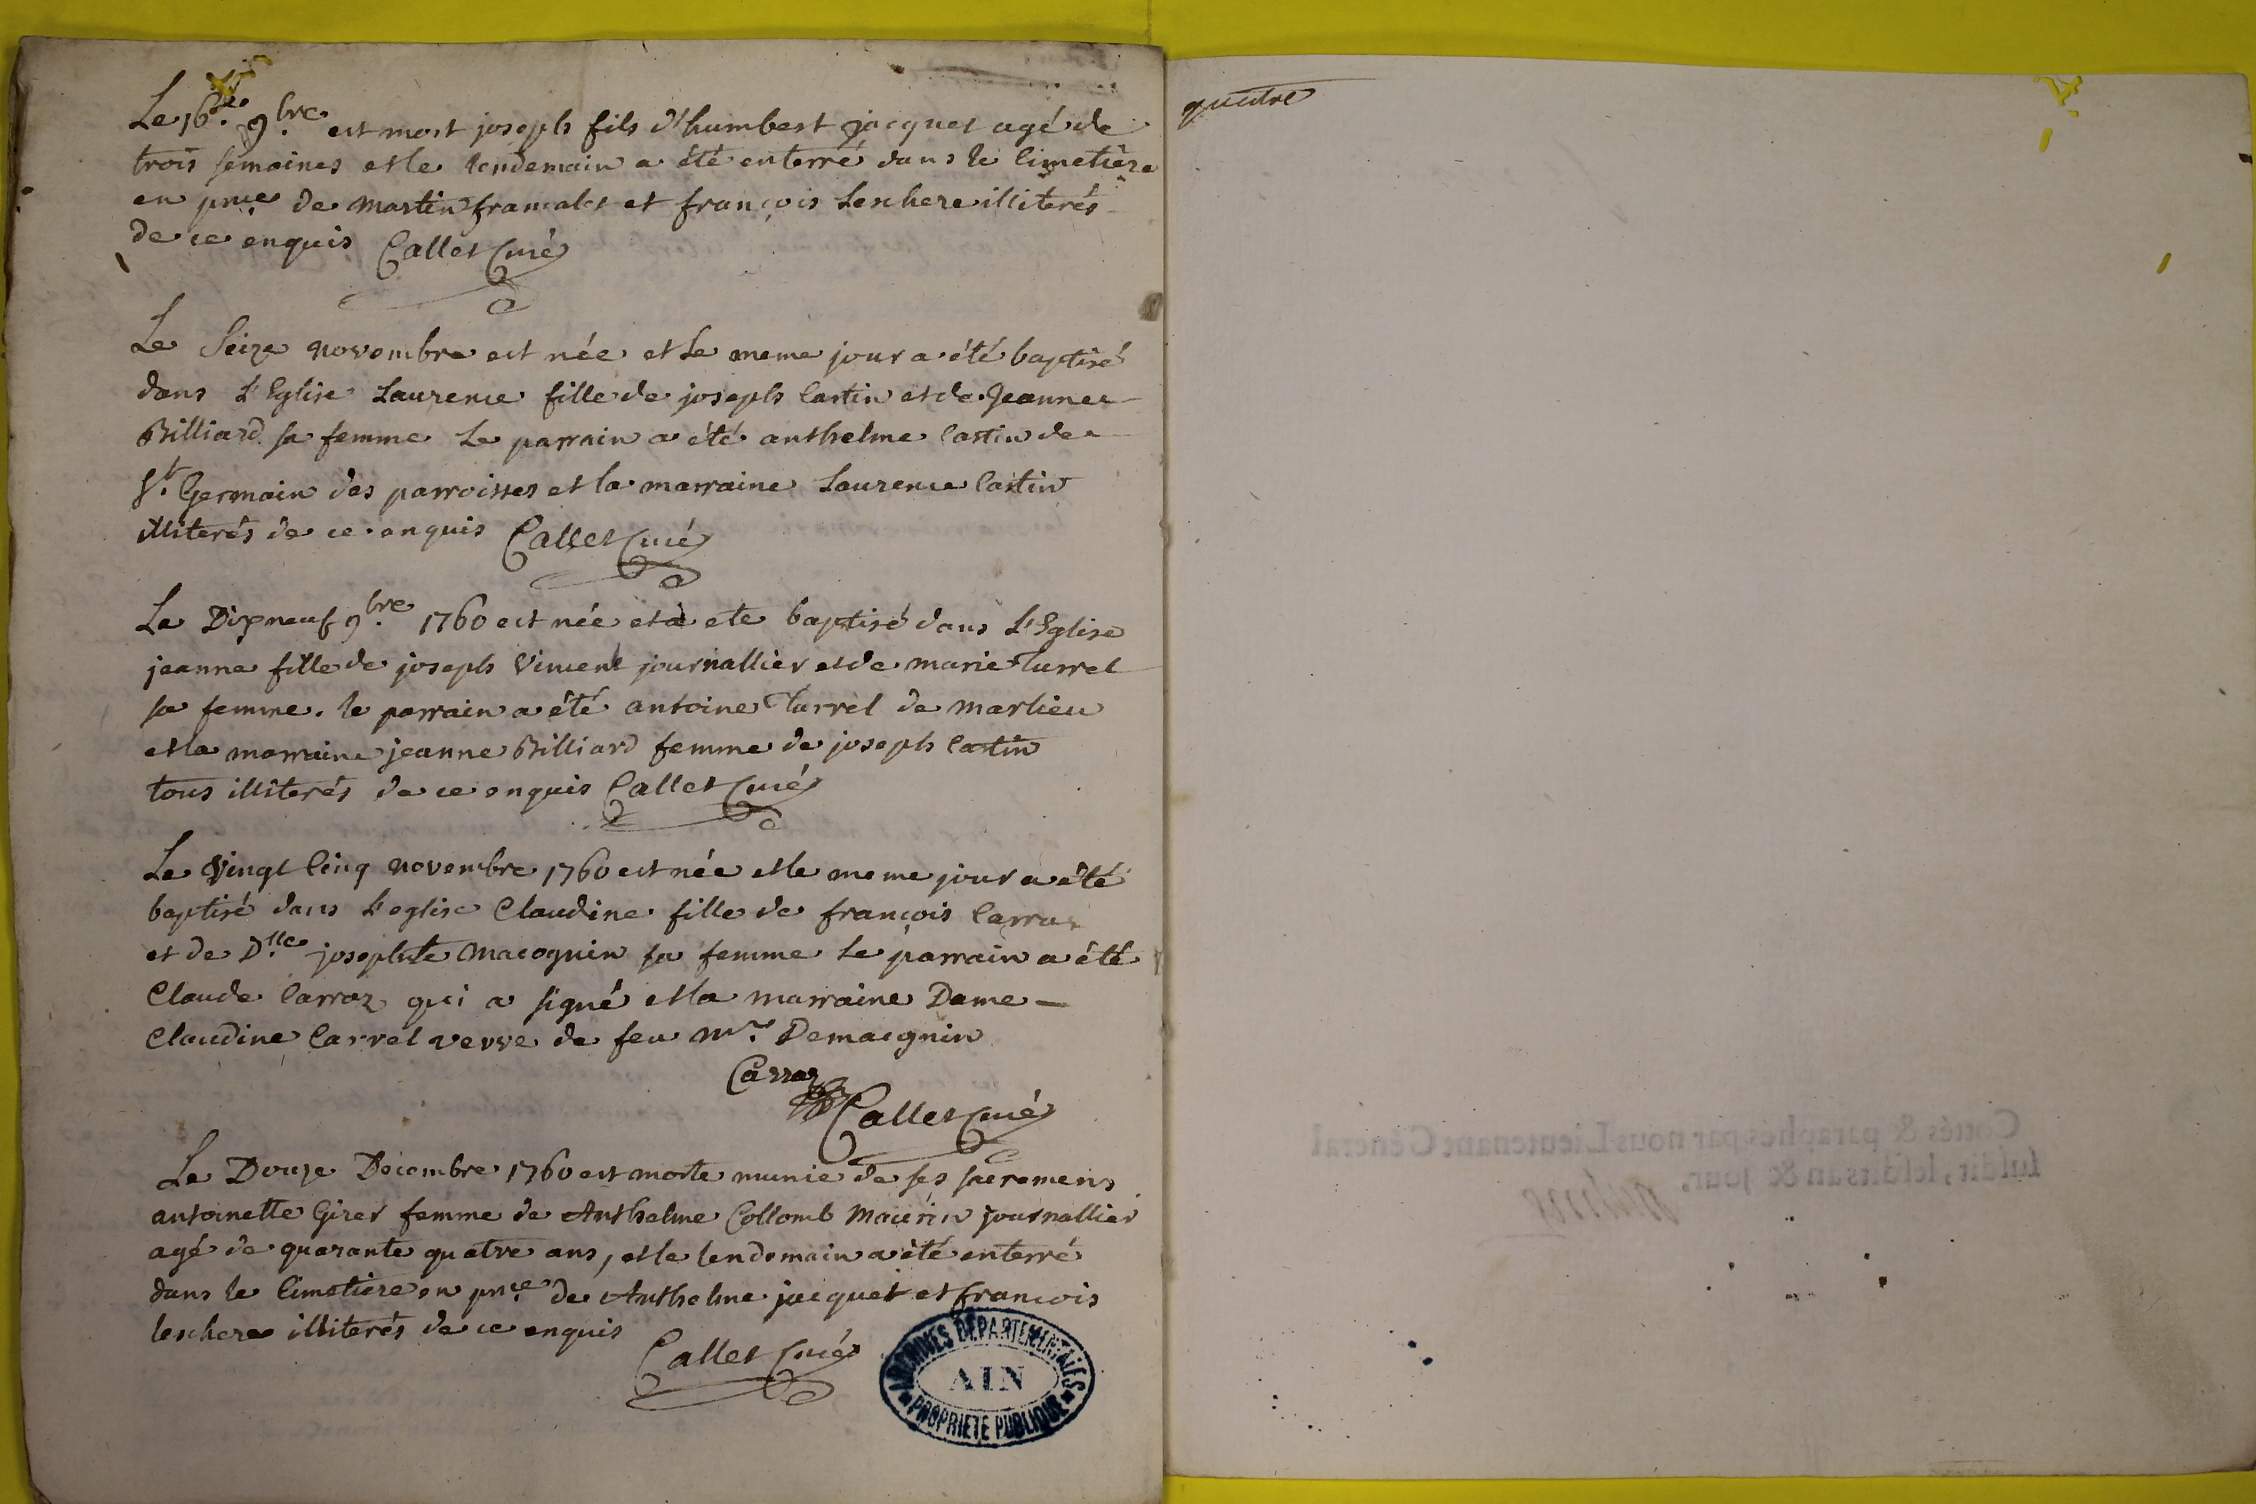 Le 16e. 9.bre est mort joseph fils d'humbert jacquet agé de
trois semaines et le lendemain a été enterré dans le Cimetière
en pnce. de Martin et françois Leschere illiterés
de ce enquis Callet Curé
Le Seize novembre est née et Le meme jour a été baptisé
dans L'Eglise Laurence fille de joseph Castin et de Jeanne
Billiard sa femme Le parrain a été anthelme Castin de
St. Germain des parroisses et la marraine Laurence Castin
illiterés de ce enquis Callet Curé
Le Dixneuf 9.bre 1760 est née et a ete baptisé dans L'Eglise
jeanne fille de joseph Vincent journallier et de marie Turrel
sa femme. le parrain a été antoine Turrel de Marlieu
et la marraine jeanne Billiard femme de joseph Castin
tous illiterés de ce enquis Callet Curé
Le Vingt Cinq novembre 1760 est née et le meme jour a été
baptisé dans L'eglise Claudine fille de françois Carraz
et de D.lle josephte Macognin sa femme Le parrain a été
Claude Carraz qui a signé et la marraine Dame
Claudine Carrel vevve de feu Mr. Demacgnin
Carraz
Callet Curé
Le Douze Décembre 1760 est morte munie de ses sacremens
antoinette Girer femme de Anthelme Collomb Maurin journallier
agé de quarante quatre ans, et le lendemain a été enterré
dans le Cimetiere en pnce. de Anthelme jacquet et françois
leschere illiterés de ce enquis
Callet Curé
ARCHIVES DEPARTEMENTALES
AIN
PROPRIETE PUBLIQUE
quatre
Cottés & paraphés par nous Lieutenant Général
susdit, lesdits an & jour.